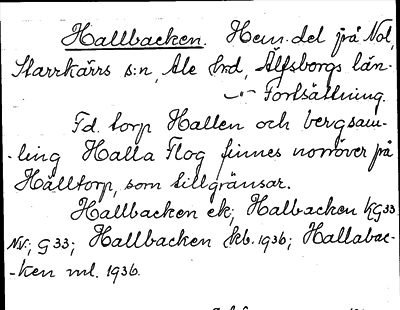 Hallbacken. Hem. del på Nol,
Starrkärrs s:n, Ale hrd, Älfsborgs län.
Fortsättning.
Fd. torp Hallen och bergsam-
-ling Halla Flog finnes norröver på
Hälltorp, som tillgränsar.
Hallbacken ek; Halbacken Kg33
Nv; G33; Hallbacken kb. 1936; Hallabac-
-ken ml. 1936.